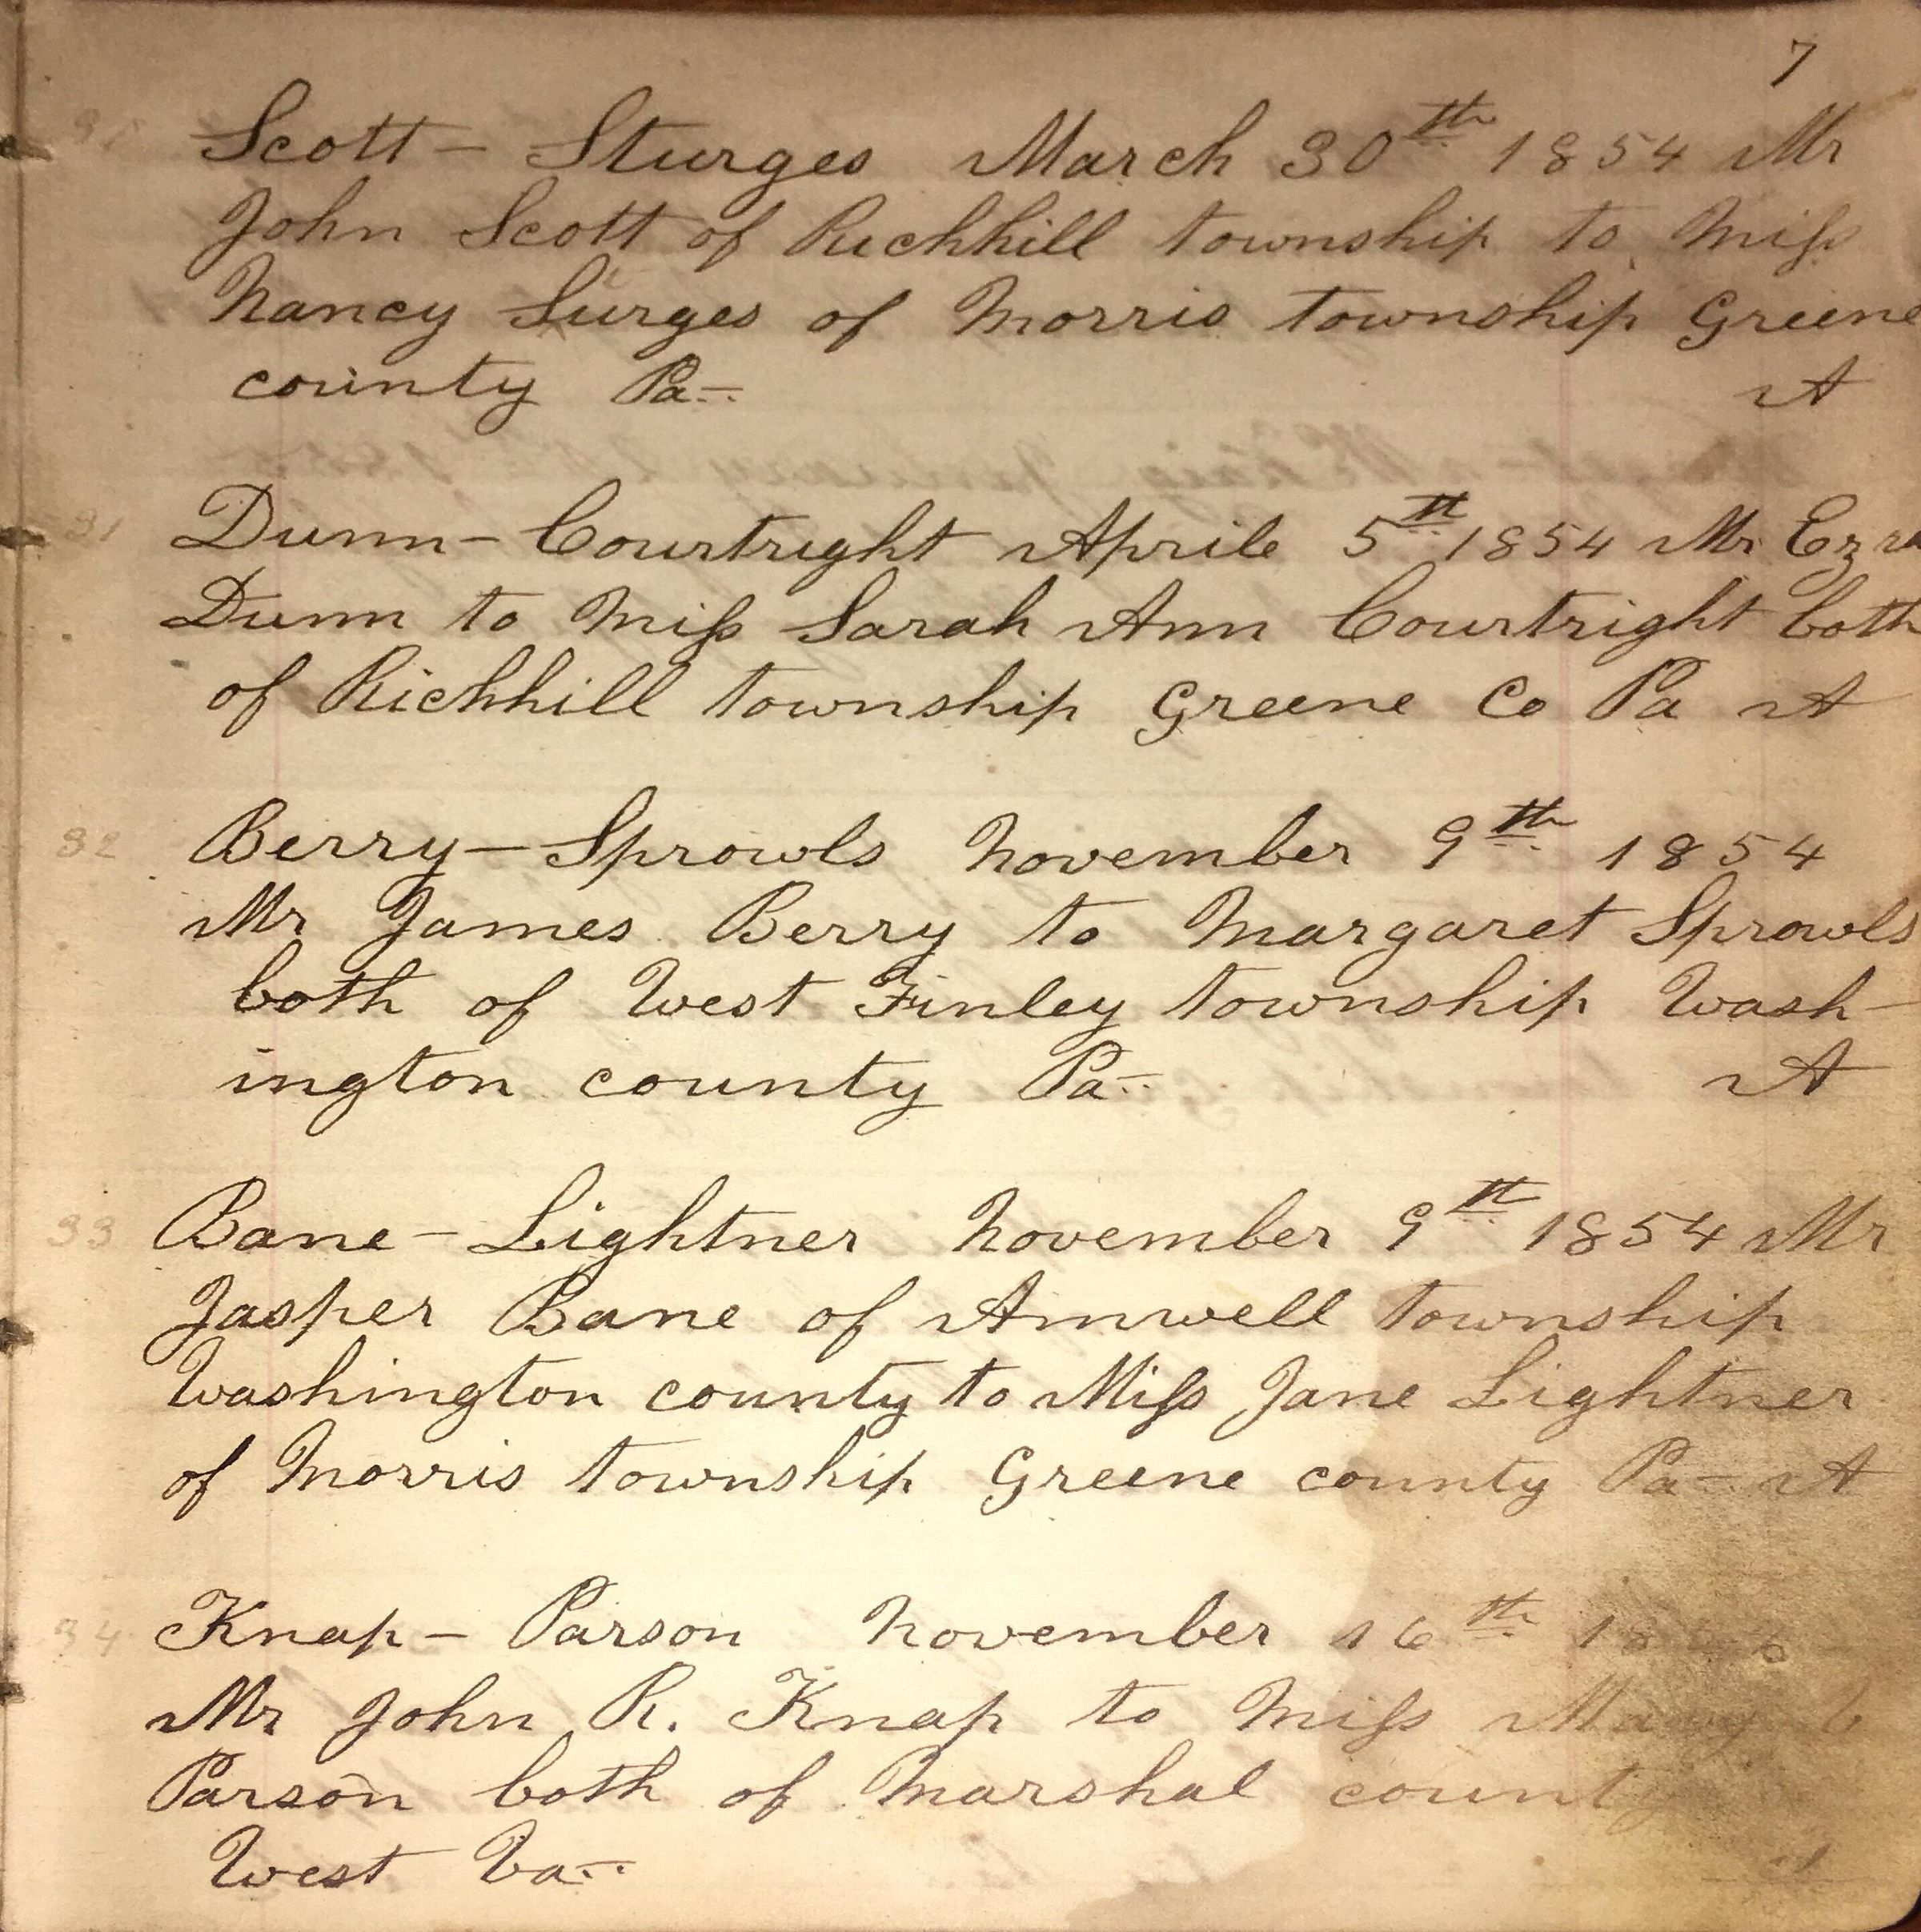 7
Scott - Sturges March 30th 1854 Mr
John Scott of Richhill township to Miss
Nancy Surges of Morris township Greene
county Pa A
31 Dunn - Courtright Aprile 5th 1854 Mr Ezra
Dunn to Miss Sarah Ann Courtright both
of Richhill township Greene Co Pa A
32 Berry - Sprowls November 9th 1854
Mr James Berry to Margaret Sprowls
both of West Finley township Wash-
ington county Pa A
33 Bane - Lightner November 9th 1854 Mr
Jasper Bane of Amwell township
Washington county to Miss Jane Lightner
of Morris township Greene county Pa A
34 Knap - Parson November 16th
Mr John R. Knap to Miss Mary
Parson both of Marshal county
West Va